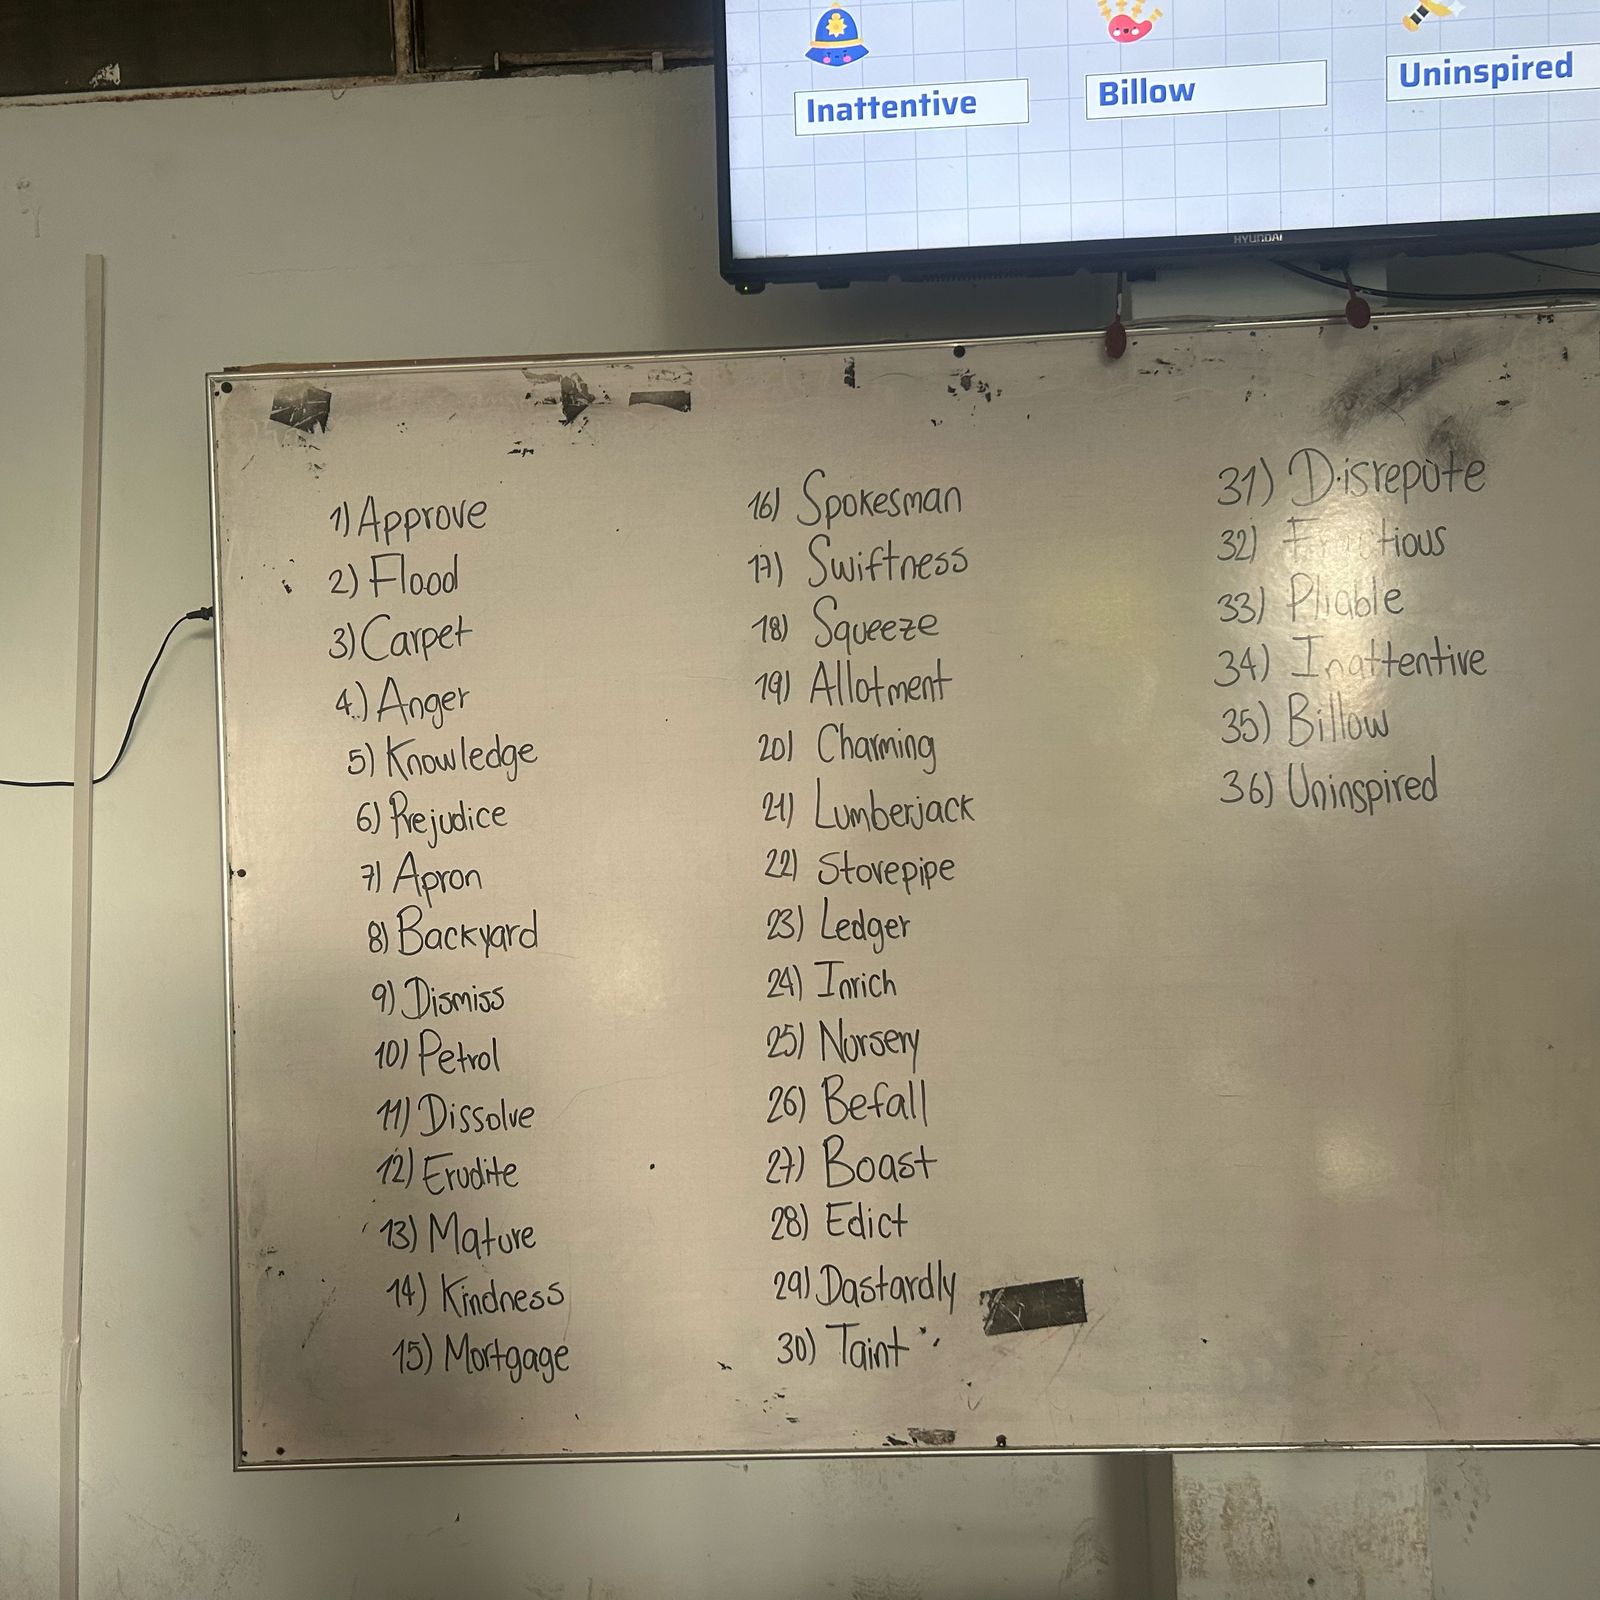 Inattentive
Billow
Uninspired
HYUNDAI
1) Approve
2) Flood
3) Carpet
4.) Anger
5) Knowledge
6) Prejudice
7) Apron
8) Backyard
9) Dismiss
10) Petrol
11) Dissolve
12) Erudite
13) Mature
14) Kindness
15) Mortgage
16) Spokesman
17) Swiftness
18) Squeeze
19) Allotment
20) Charming
21) Lumberjack
22) Stovepipe
23) Ledger
24) Inrich
25) Nursery
26) Befall
27) Boast
28) Edict
29) Dastardly
30) Taint
31) Disrepute
32)
33) Pliable
34) Inattentive
35) Billow
36) Uninspired